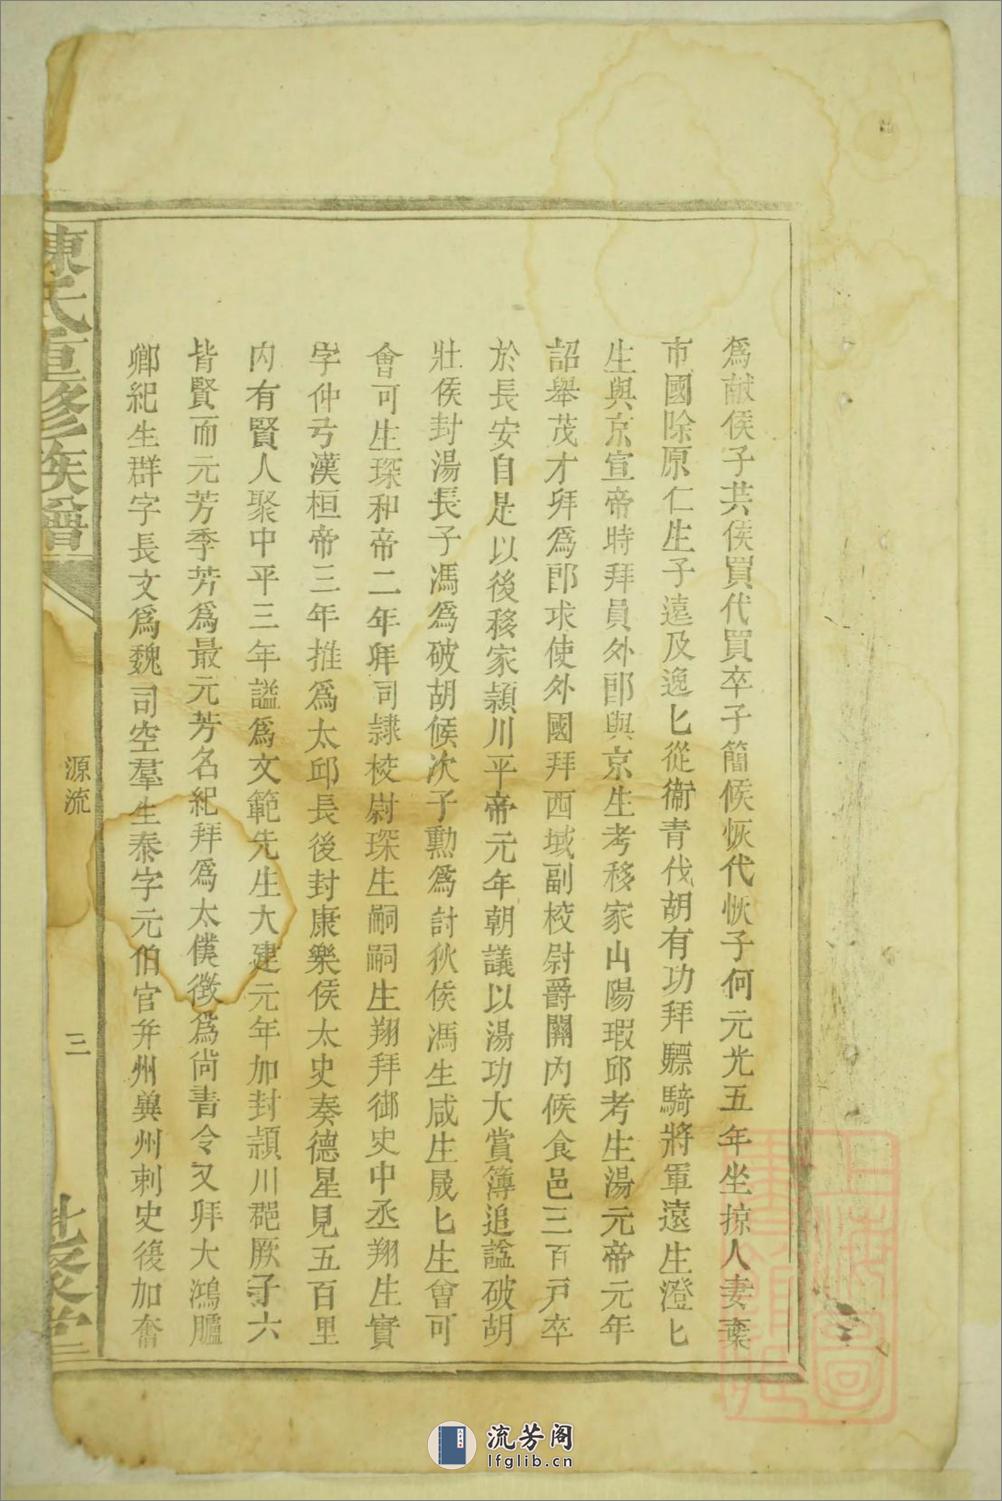 為献侯子共侯買代買卒子簡候恢代恢子何元光五年坐掠人妻棄
市國除原仁生子遠及逸匕從衞青伐胡有功拜驃騎將軍遠生澄匕
生與京宣帝時拜員外郎與京生考移家山陽瑕邱考生湯元帝元年
詔舉茂才拜為郎求使外國拜西域副校尉爵關内候食邑三百戸卒
於長安自是以後移家頴川平帝元年朝議以湯功大賞簿追諡破胡
壯侯封湯長子馮為破胡候次子勲為討狄侯馮生咸生晟匕生會可
會可生琛和帝二年拜司隷校尉琛生嗣嗣生翔拜御史中丞翔生實
字仲弓漢桓帝三年推為太邱長後封康樂侯太史奏德星見五百里
内有賢人聚中平三年謚為文範先生大建元年加封頴川郡厥子六
皆賢而元芳季芳為最元芳名紀拜為太僕徴為尚書令又拜大鴻臚
卿紀生群字長文為魏司空羣生泰字元伯官并州兾州刺史後加奮
陳氏重修族譜
源流
三
上海圖書館藏
流芳阁
lfglib.cn